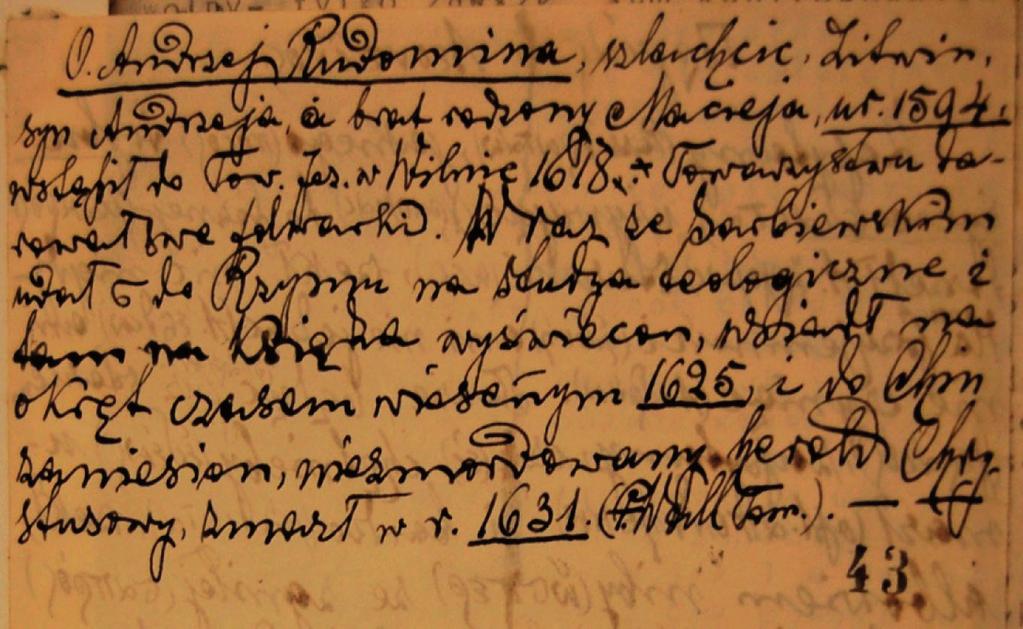 O. Andrzej Rudomina, szlachcic, Litwin,
syn Andrzeja, a brat rodzony Macieja, ur. 1594.
wstąpił do Tow. Jez. w Wilnie 1618. + Towarzystwu da-
rował swe folwarki. Wraz ze Sarbiewskim
udał do Rzymu na studza teologiczne i
tam na księdza wyświęcon, wsiadł na
okręt czasem wiosennym 1625, i do Chin
zaniesion, niezmordowany herold Chry-
stusowy, zmarł w r. 1631. —
43